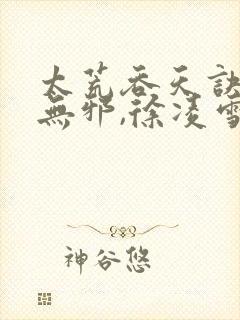 太荒吞天訣
無邪,徐淩雪
神谷悠